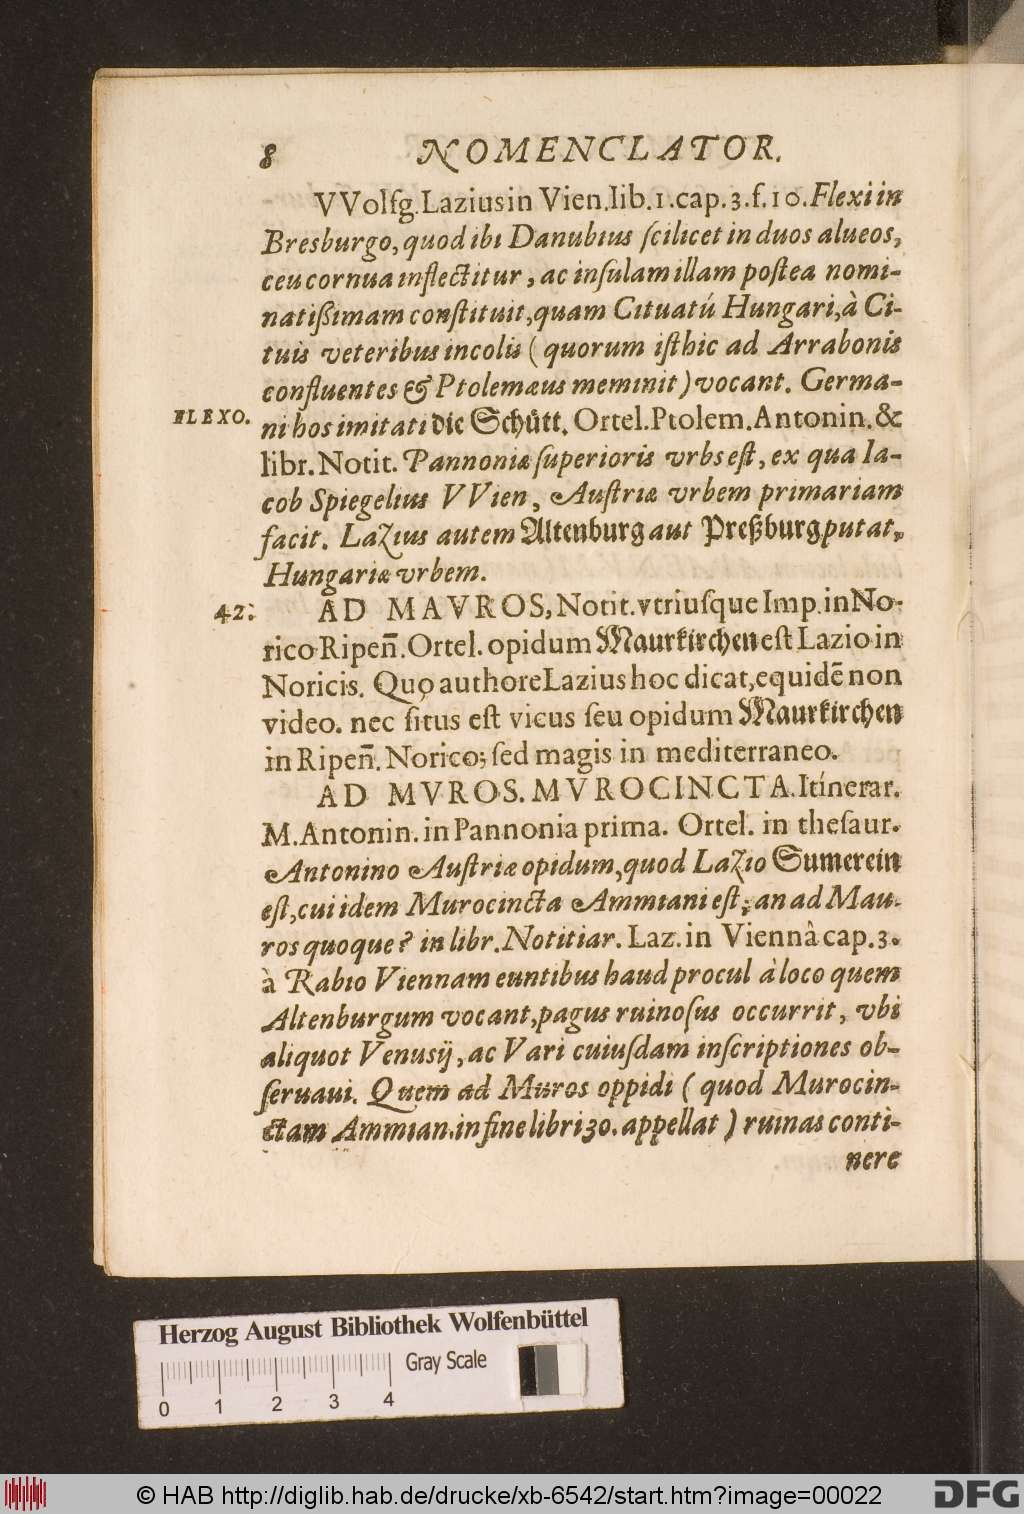 8 NOMENCLATOR.
VVolfg. Lazius in Vien. lib. 1. cap. 3. f. 10. Flexi in
Bresburgo, quod ibi Danubius ſcilicet in duos alueos,
ceu cornua inflectitur, ac inſulam illam poſtea nomi-
natißimam conſtituit, quam Cituatú Hungari, à Ci-
tuis veteribus incolis (quorum iſthic ad Arrabonis
confluentes & Ptolemæus meminit) vocant. Germa-
FLEXO. ni hos imitati die Schütt. Ortel. Ptolem. Antonin. &
libr. Notit. Pannoniæ ſuperioris vrbs eſt, ex qua Ia-
cob Spiegelius VVien, Auſtriæ vrbem primariam
facit. Lazius autem Altenburg aut Preßburg putat,
Hungariæ vrbem.
42. AD MAVROS, Notit. vtriuſque Imp. in No-
rico Ripen̄. Ortel. opidum Maurkirchen eſt Lazio in
Noricis. Quo authore Lazius hoc dicat, equidē non
video. nec ſitus eſt vicus ſeu opidum Maurkirchen
in Ripen̄. Norico; ſed magis in mediterraneo.
AD MVROS. MVROCINCTA. Itinerar.
M. Antonin. in Pannonia prima. Ortel. in theſaur.
Antonino Auſtriæ opidum, quod Lazio Sumerein
eſt, cui idem Murocincta Ammiani eſt; an ad Mau-
ros quoque? in libr. Notitiar. Laz. in Viennâ cap. 3.
à Rabio Viennam euntibus haud procul à loco quem
Altenburgum vocant, pagus ruinoſus occurrit, vbi
aliquot Venusij, ac Vari cuiuſdam inſcriptiones ob-
ſeruaui. Quem ad Muros oppidi (quod Murocin-
ctam Ammian. in fine libri 30. appellat) ruinas conti-
nere
Herzog August Bibliothek Wolfenbüttel
Gray Scale
0 1 2 3 4
© HAB http://diglib.hab.de/drucke/xb-6542/start.htm?image=00022
DFG